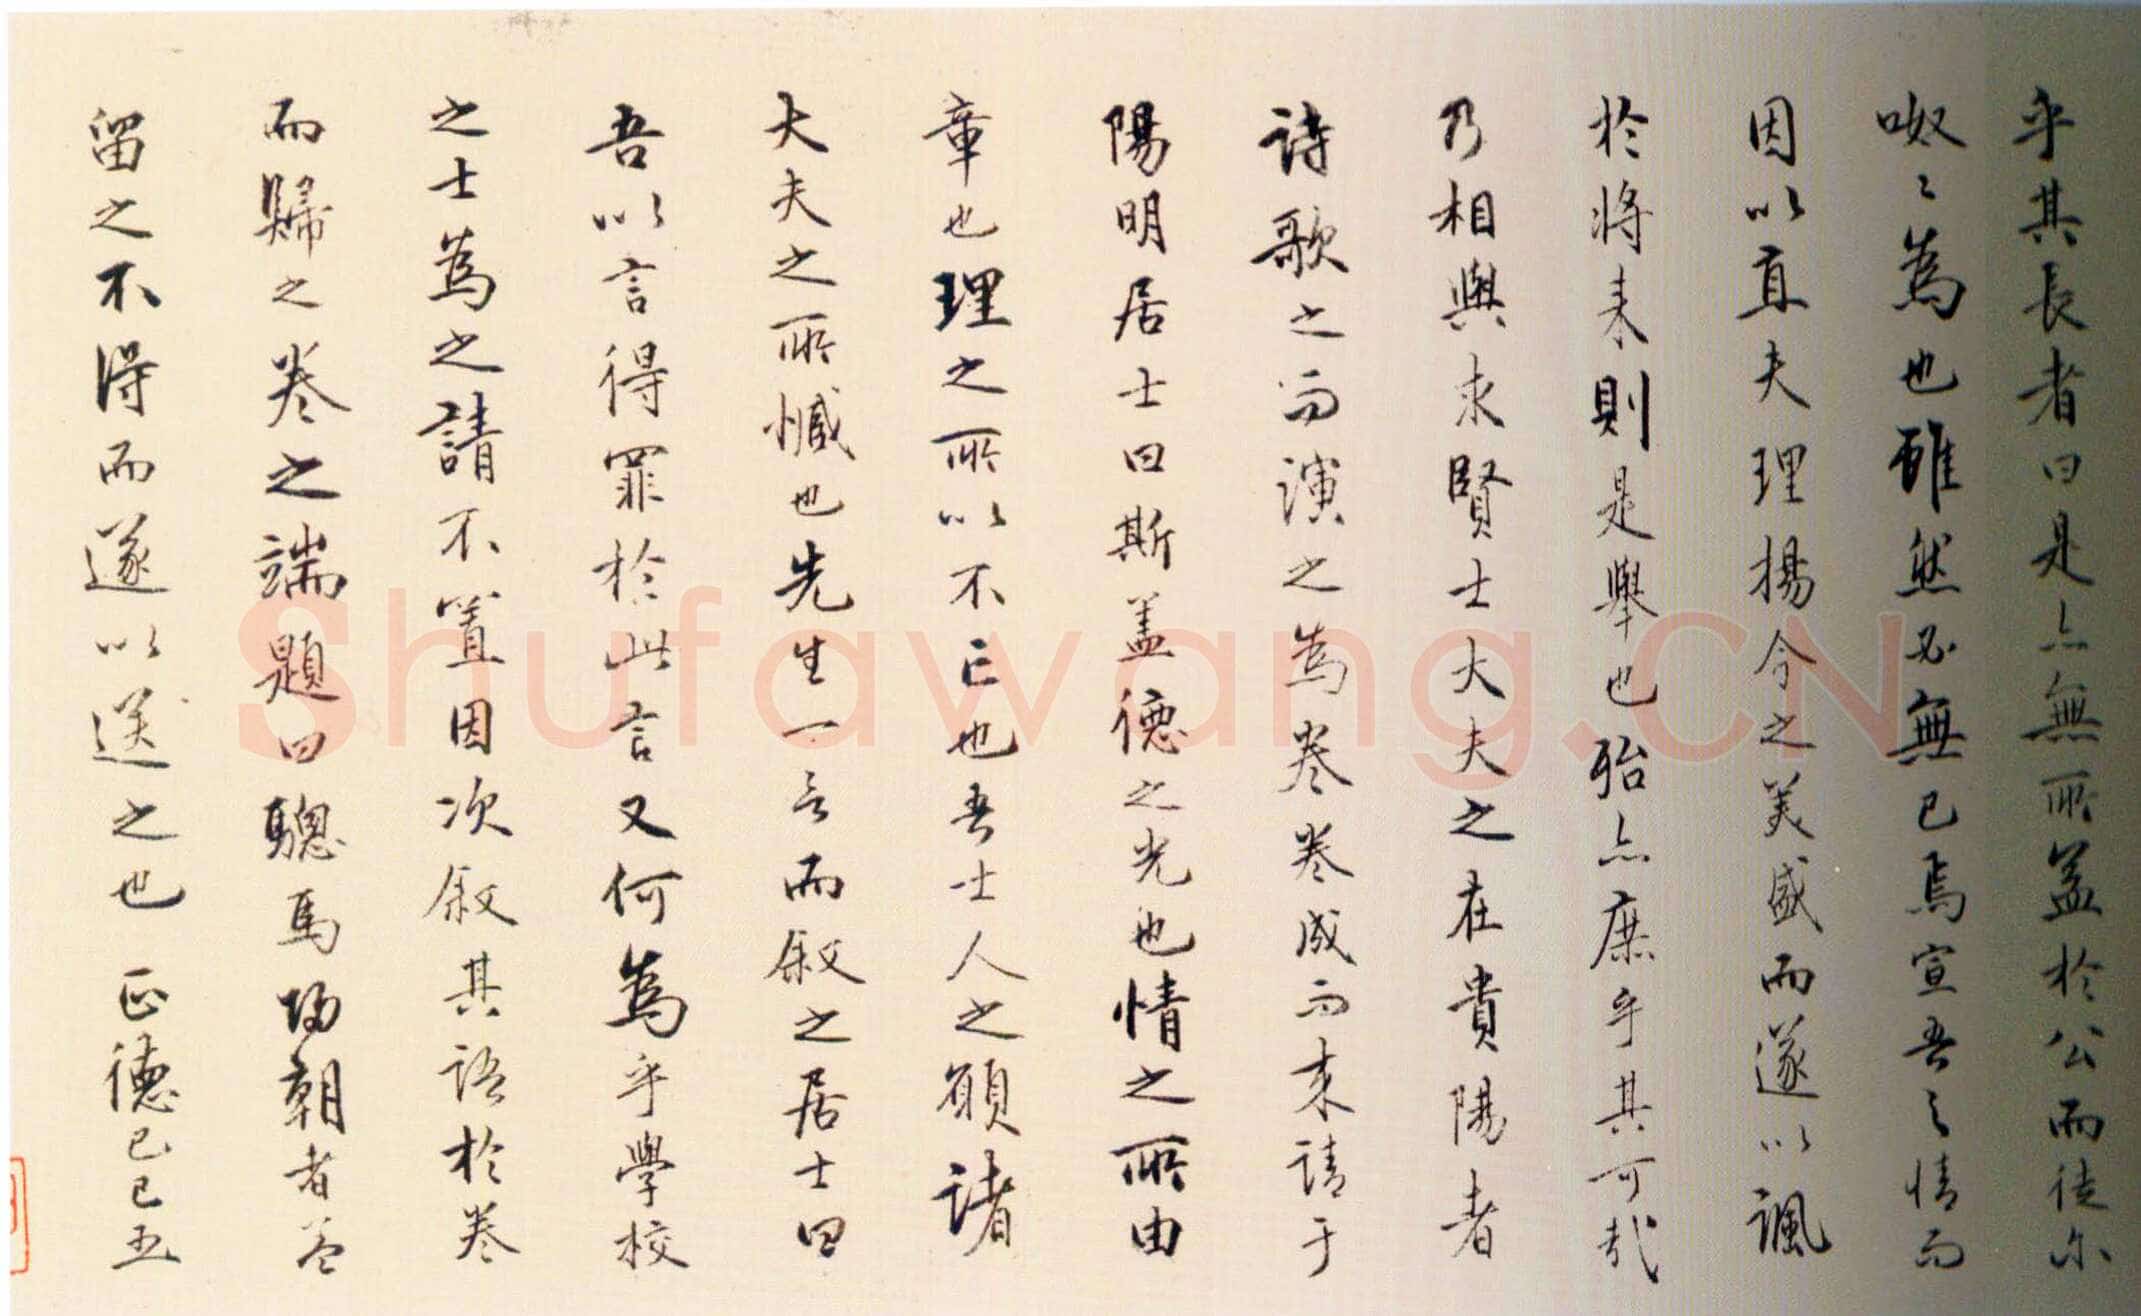 乎其長者曰是亦無所益於公而徒尔
呶々為也雖然必無已焉宣吾之情而
因以直夫理揚今之美盛而遂以諷
於將來則是舉也殆亦庶乎其可哉
乃相與求賢士大夫之在貴陽者
詩歌之而演之為卷卷成而来請于
陽明居士曰斯盖德之光也情之所由
章也理之所以不亡也吾士人之願諸
大夫之所憾也先生一言而敘之居士曰
吾以言得罪於此言又何為乎學校
之士為之請不置因次敘其語於卷
而歸之卷之端題曰驄馬歸朝者盖
留之不得而遂以送之也 正德己巳五
Shufawang.CN